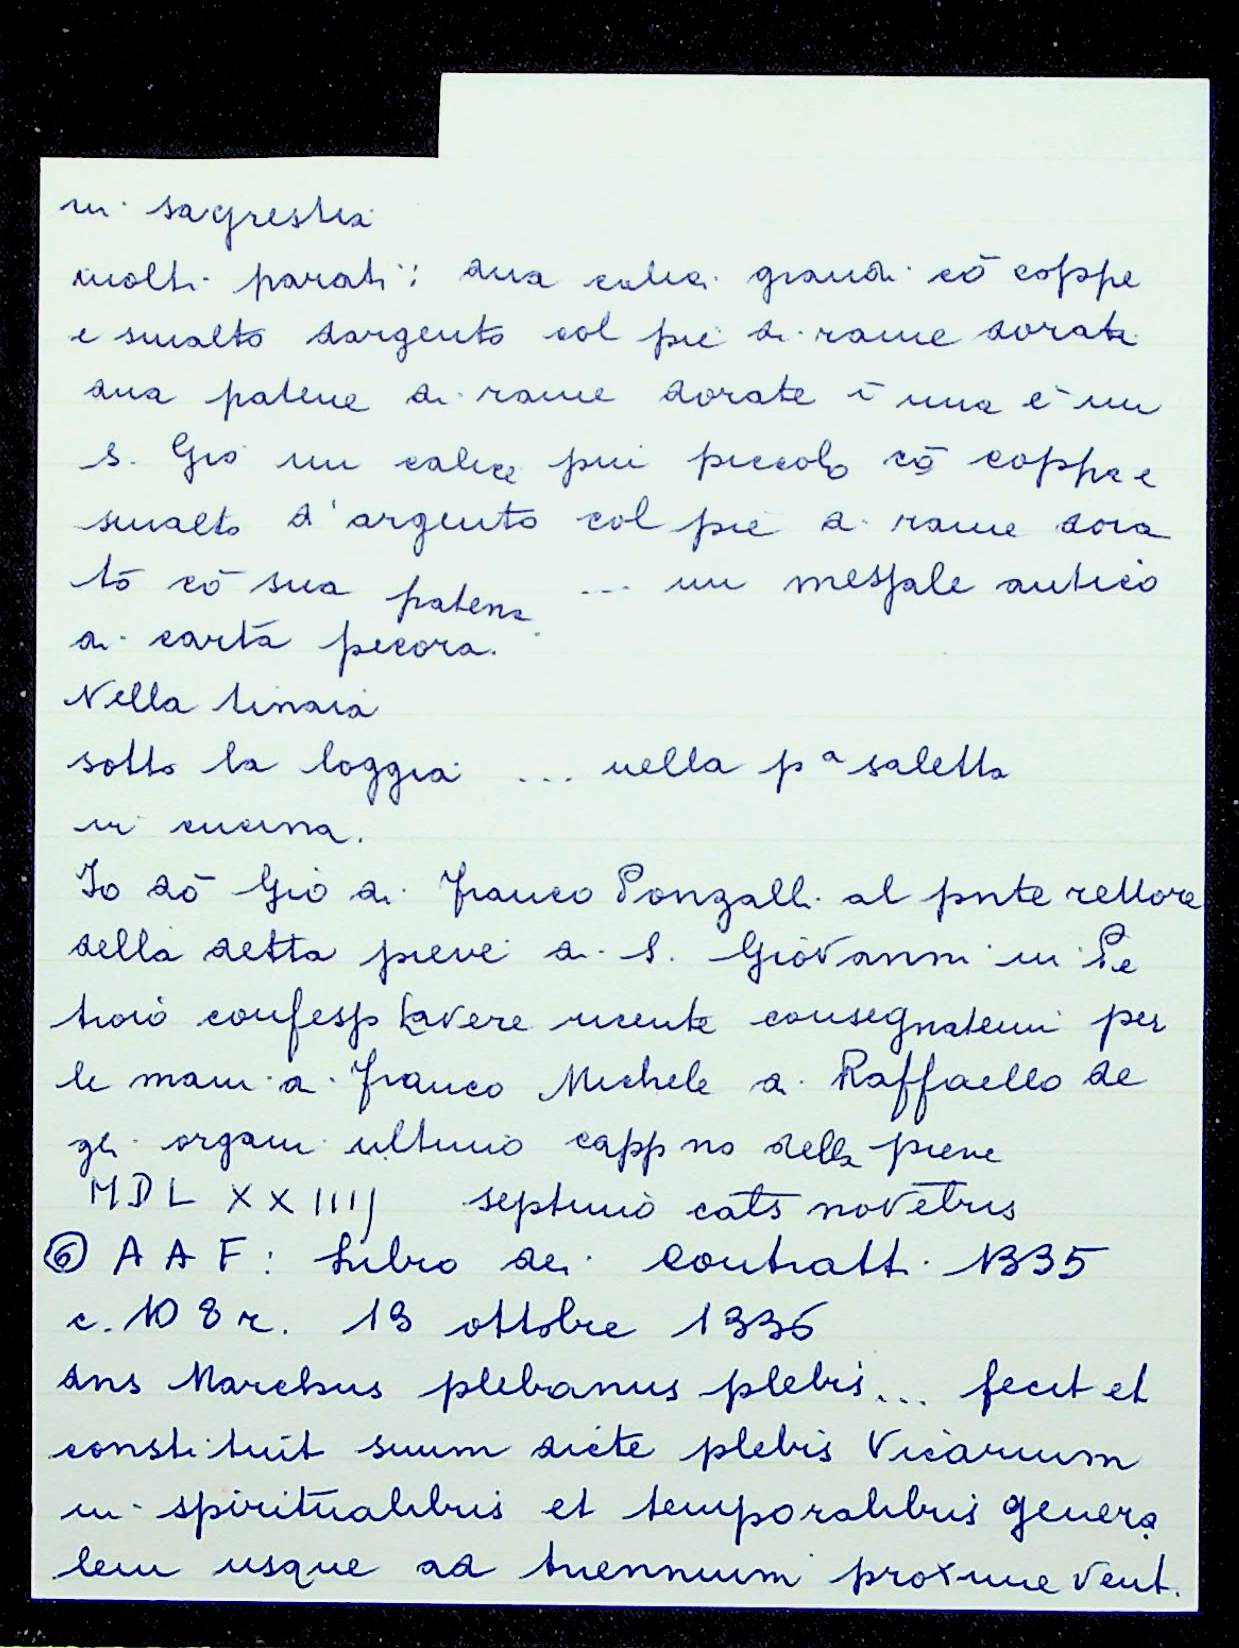 in sagrestia
molti parati: dua calici grandi cō coppe
e smalto dargento col piè di rame dorati
dua patene di rame dorate ī una è un
S. Gio un calice piu piccolo cō coppa e
smalto d'argento col piè di rame dora
to cō sua patena ... un messale antico
di carta pecora.
Nella tinaia
sotto la loggia ... nella pª saletta
in cucina.
Io dō Gio di Franco Ponzalli al pnte rettore
della detta pieve di S. Giovanni in Pe
troio confesso havere ricente consegnatemi per
le mani di Franco Michele di Raffaello de
gli organi ultimo capp no della pieve
MDLXXIIIJ septimo cats novētris
⑥ AAF: Libro dei Contratti 1335
c. 108 r. 13 ottobre 1336
dns Marchus plebanus plebis ... fecit et
constituit suum dicte plebis Vicarium
in spiritualibus et temporalibus genera
lem usque ad triennium proxime vent.